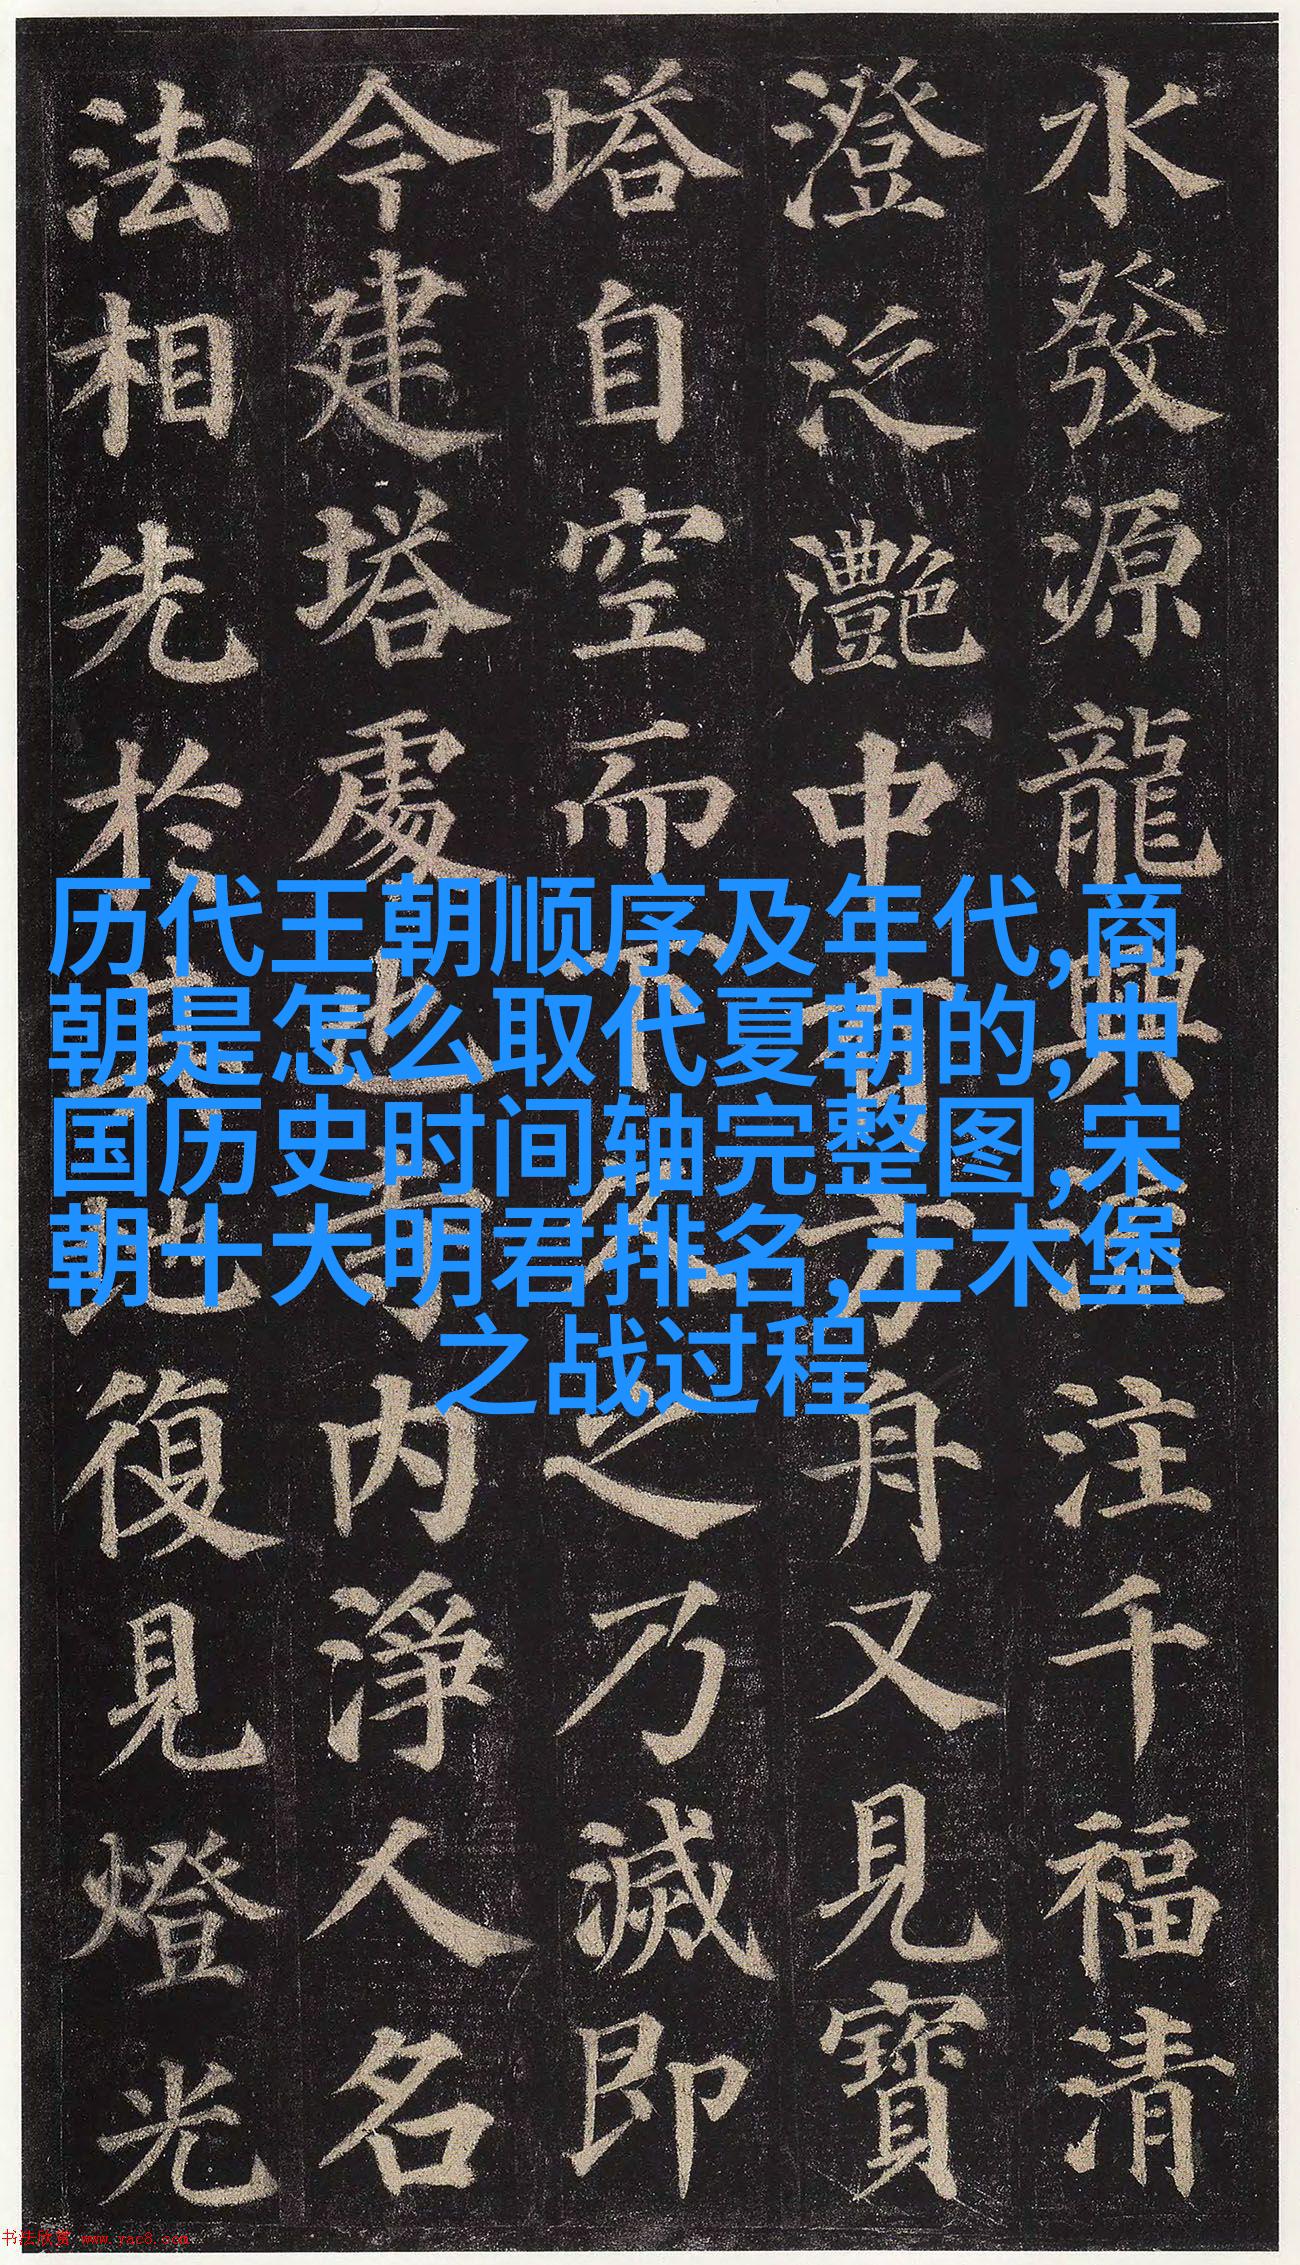 水發源龍興流注千福清
澄泛灧中有方舟又見寶
塔自空而下久之乃滅即
今建塔處也寺内淨人名
法相先於其地復見燈光
历代王朝顺序及年代,商
朝是怎么取代夏朝的,中
国历史时间轴完整图,宋
朝十大明君排名,土木堡
之战过程
书法欣赏 www.yac8.com